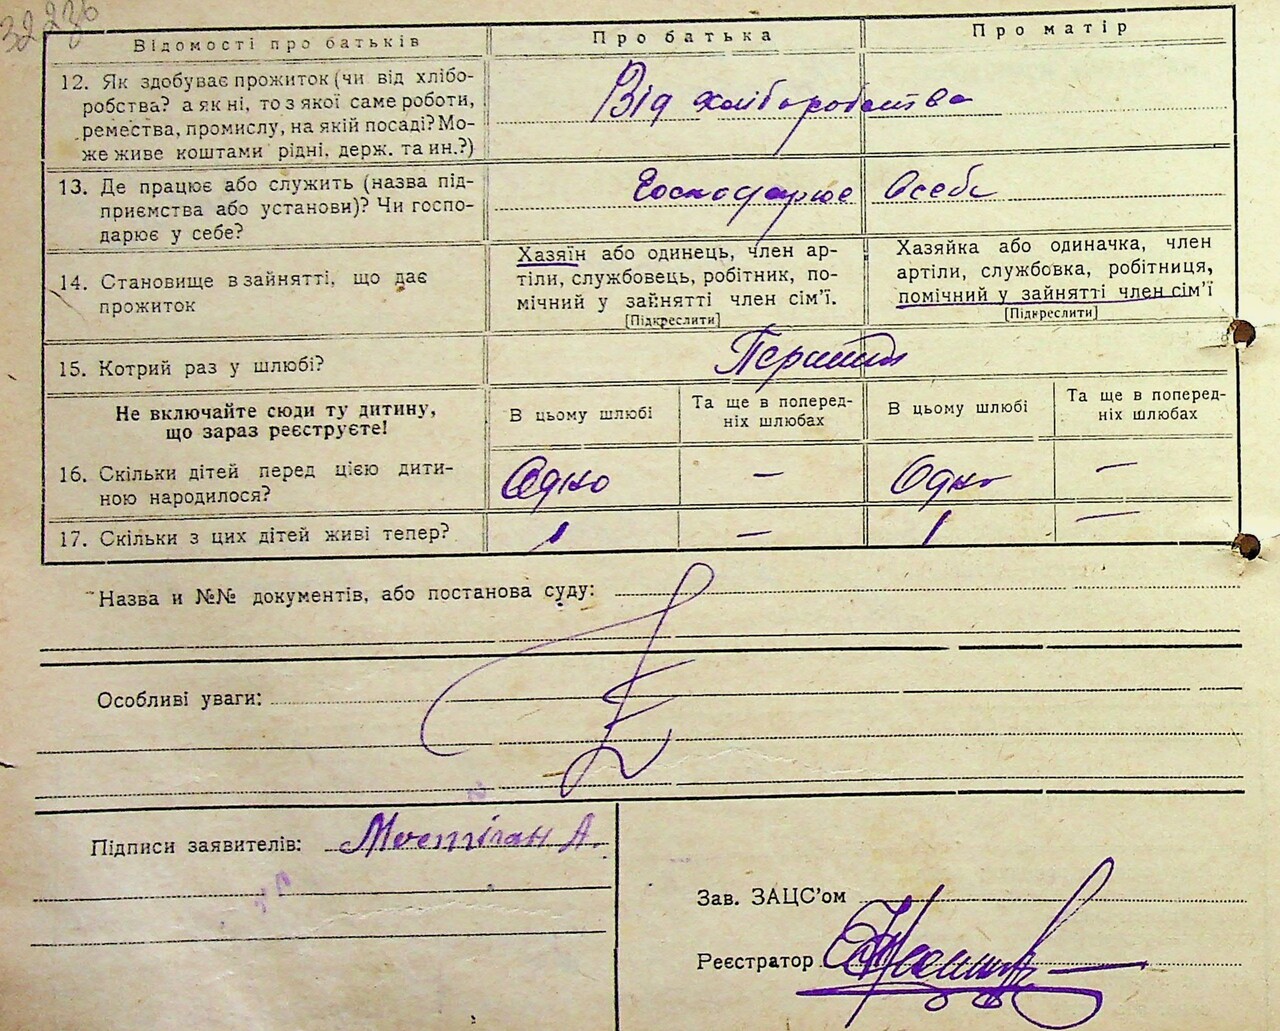 Відомості про батьків Про батька Про матір
12. Як здобуває прожиток (чи від хлібо-
робства? а як ні, то з якої саме роботи,
ремества, промислу, на якій посаді? Мо-
же живе коштами рідні, держ. та ин.?)
Від хліборобства
13. Де працює або служить (назва під-
приємства або установи)? Чи госпо-
дарює у себе?
Господарює
14. Становище в зайнятті, що дає
прожиток
Хазяїн або одинець, член ар-
тіли, службовець, робітник, по-
мічний у зайнятті член сім'ї.
[Підкреслити]
Хазяйка або одиначка, член
артіли, службовка, робітниця,
помічний у зайнятті член сім'ї
[Підкреслити]
15. Котрий раз у шлюбі?
Не включайте сюди ту дитину,
що зараз реєструєте!
В цьому шлюбі
Та ще в поперед-
ніх шлюбах
В цьому шлюбі
Та ще в поперед-
ніх шлюбах
16. Скільки дітей перед цією дити-
ною народилося?
Одно — Одно —
17. Скільки з цих дітей живі тепер?
1 — 1 —
Назва и №№ документів, або постанова суду:
Особливі уваги:
Підписи заявителів:
Зав. ЗАЦС'ом
Реєстратор